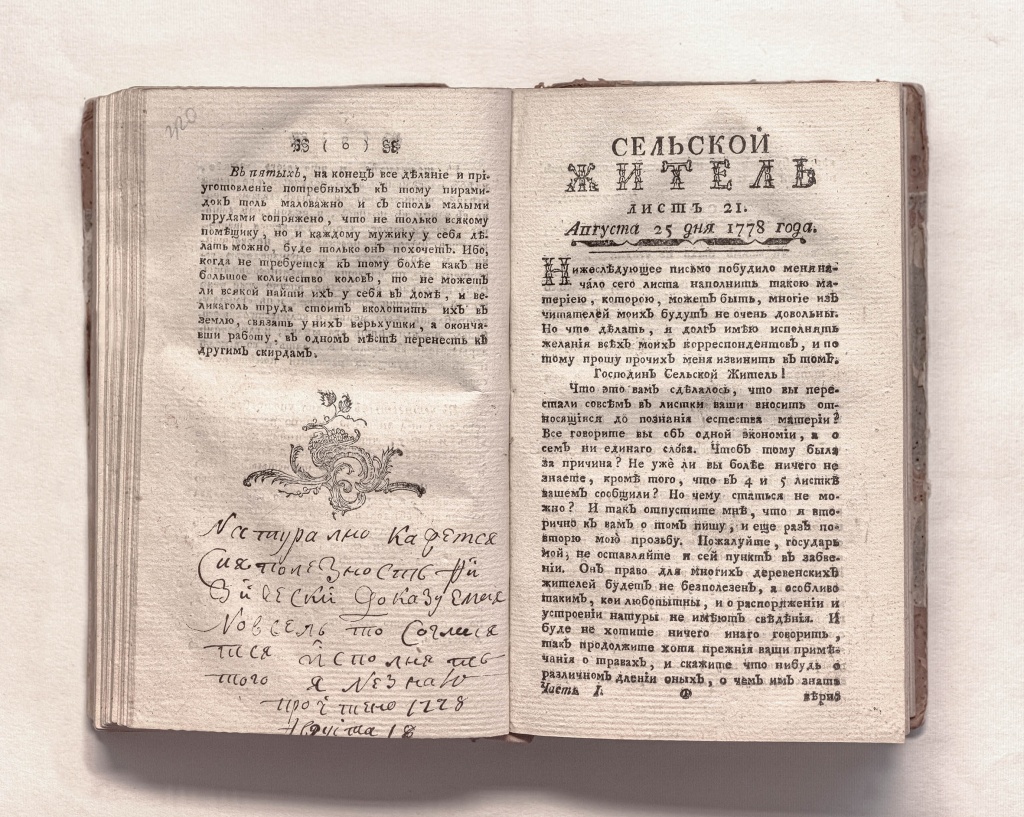 ( 6 )
Въ пятыхъ, на конецъ все дѣланіе и прі-
уготовленіе потребныхъ къ тому пирами-
докъ толь маловажно и съ столь малыми
трудами сопряжено, что не только всякому
помѣщику, но и каждому мужику у себя дѣ-
лать можно, буде только онъ похочетъ. Ибо,
когда не требуется къ тому болѣе какъ не
большое количество коловъ, то не можетъ
ли всякой найти ихъ у себя въ домѣ, и ве-
ликаголь труда стоитъ вколотить ихъ въ
землю, связать у нихъ верьхушки, а оконча-
вши работу, въ одномъ мѣстѣ перенесть къ
другимъ скирдамъ.
Натурално кажется
Сия полезность фи
зически доказуемая
Но всель то согласЯ
тся исполнять
того я незнаю
прочтено 1778
Августа 18
СЕЛЬСКОЙ
ЖИТЕЛЬ
ЛИСТЪ 21.
Августа 25 дня 1778 года.
Нижеслѣдующее письмо побудило меня на-
чало сего листа наполнить такою ма-
теріею, которою, можетъ быть, многіе изъ
читателей моихъ будутъ не очень довольны.
Но что дѣлать, я долгъ имѣю исполнять
желанія всѣхъ моихъ корреспондентовъ, и по
тому прошу прочихъ меня извинить въ томъ.
Господинъ Сельской Житель!
Что это вамъ сдѣлалось, что вы пере-
стали совсѣмъ въ листки ваши вносить от-
носящіяся до познанія естества матеріи?
Все говорите вы объ одной экономіи, а о
семъ ни единаго слова. Чтобъ тому была
за причина? Не уже ли вы болѣе ничего не
знаете, кромѣ того, что въ 4 и 5 листкѣ
вашемъ сообщили? Но чему статься не мо-
жно? И такъ отпустите мнѣ, что я вто-
рично къ вамъ о томъ пишу, и еще разъ по-
вторю мою прозьбу. Пожалуйте, государь
мой, не оставляйте и сей пунктъ въ забве-
ніи. Онъ право для многихъ деревенскихъ
жителей будетъ не безполезенъ, а особливо
такимъ, кои любопытны, и о распоряженіи и
устроеніи натуры не имѣютъ свѣденія. И
буде не хотите ничего инаго говорить,
такъ продолжите хотя прежнія ваши примѣ-
чанія о травахъ, и скажите что нибудь о
различномъ дленіи оныхъ, о чемъ имъ знать
Часть I. вѣрно